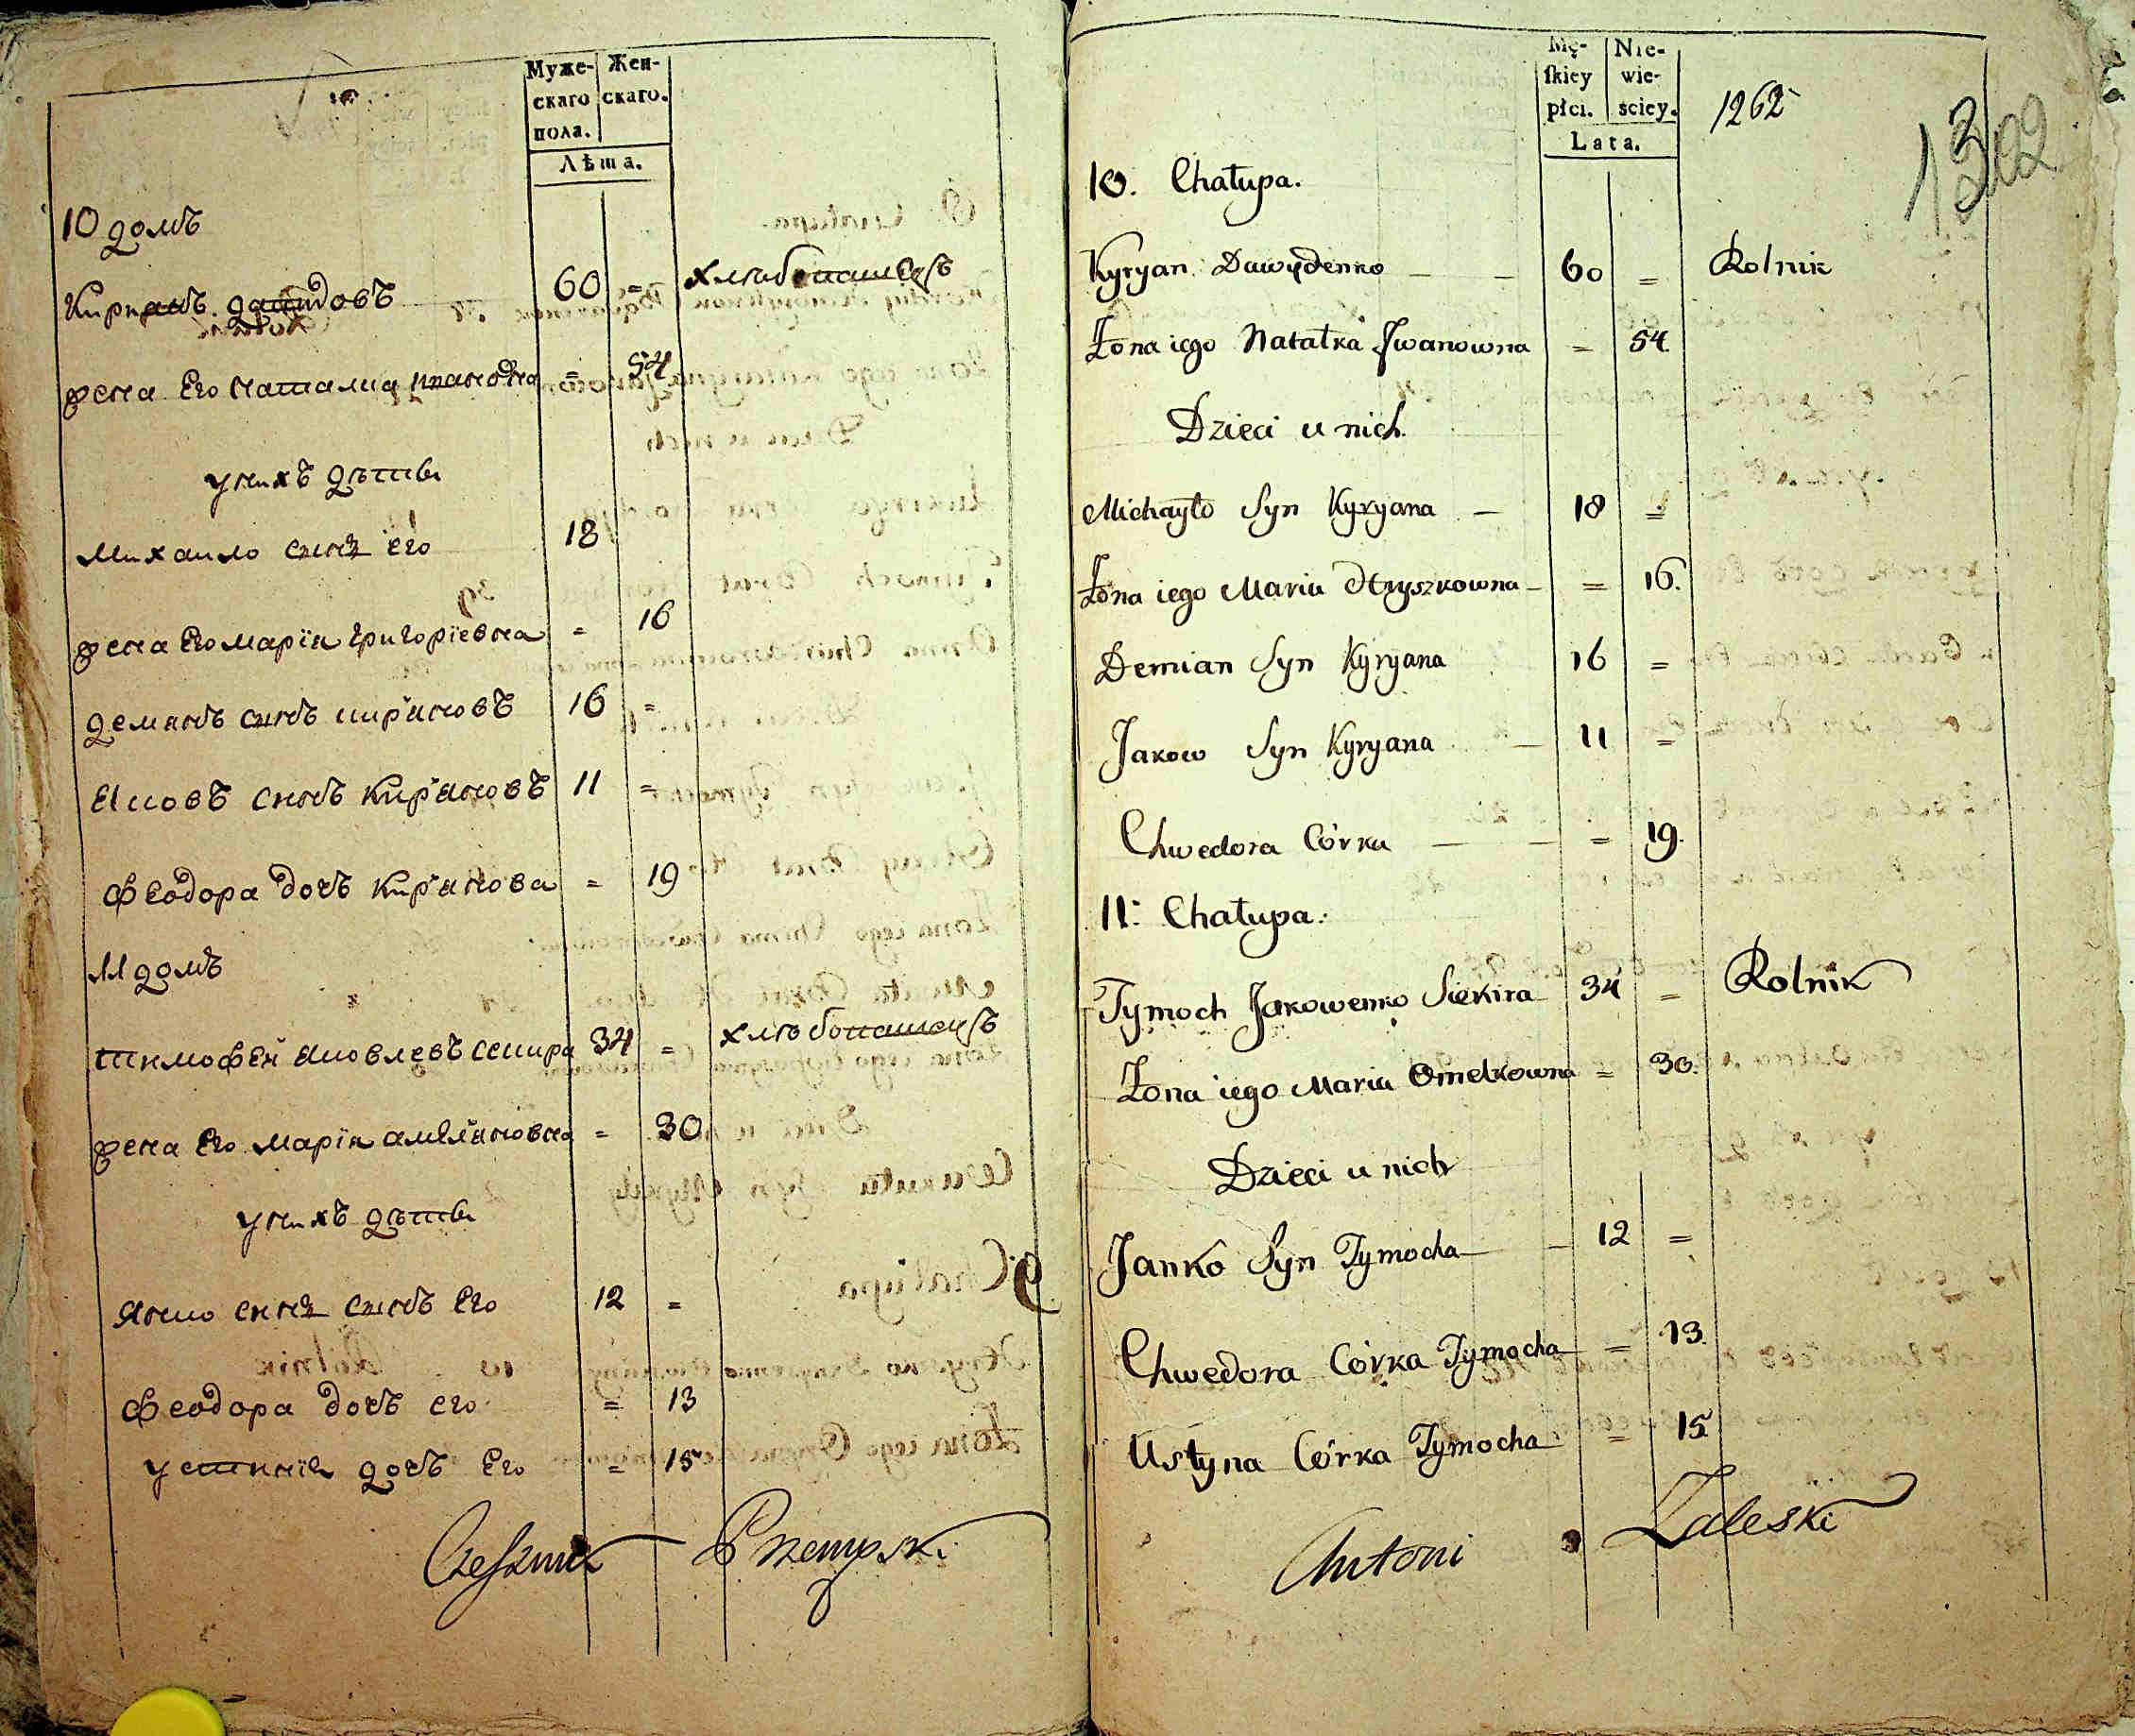 Муже-
скаго
пола.
Жен-
скаго.
Лѣта.
10 домъ
Кириянъ давидовъ 60 = хлѣбопашецъ
жена Его наталиа ивановна = 54
у нихъ дѣти
Михаило сынъ его 18
жена Его марїя григорїевна = 16
демянъ сынъ кирꙗновъ 16 =
Яковъ сынъ кирꙗновъ 11 =
Феодора дочъ кирꙗнова = 19
11 домъ
тимофей яковлевъ секира 34 = хлѣбопашецъ
жена Его марїя амелꙗновна = 30
у нихъ дѣти
янко сынъ Его 12 =
Феодора дочъ его = 13
устинїя дочъ Его = 15
Mę-
skiey
płci.
Nie-
wie-
sciey.
Lata.
1262
1302
10. Chałupa.
Kyryan Dawydenko 60 = Rolnik
Żona iego Natałka Jwanowna = 54.
Dzieci u nich.
Michayło Syn Kyryana 18 =
Żona iego Maria Hryszkowna = 16.
Demian Syn Kyryana 16 =
Jakow Syn Kyryana 11 =
Chwedora Córka = 19.
11. Chałupa.
Tymoch Jakowenko Siekira 34 = Rolnik
Żona iego Maria Omelkowna = 30.
Dzieci u nich
Janko Syn Tymocha 12 =
Chwedora Córka Tymocha = 13.
Ustyna Córka Tymocha = 15
Antoni Zaleski